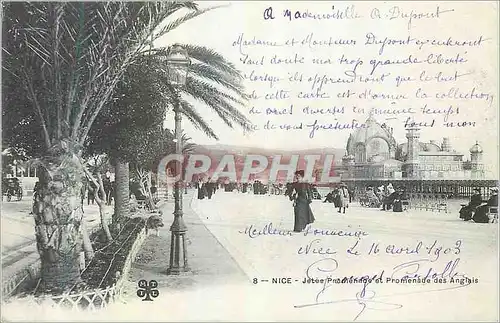 A Mademoiselle A. Dupont
Madame et Monsieur Dupont excuseront
sans doute ma trop grande liberté
lorsqu'ils apprendront que le but
de cette carte est d'orner la collection
de vues diverses en même temps
que de vous présenter à tous mon
CPARAMA
Meilleur Souvenir
Nice le 16 avril 1903
8 -- NICE - Jetée Promenade et Promenade des Anglais